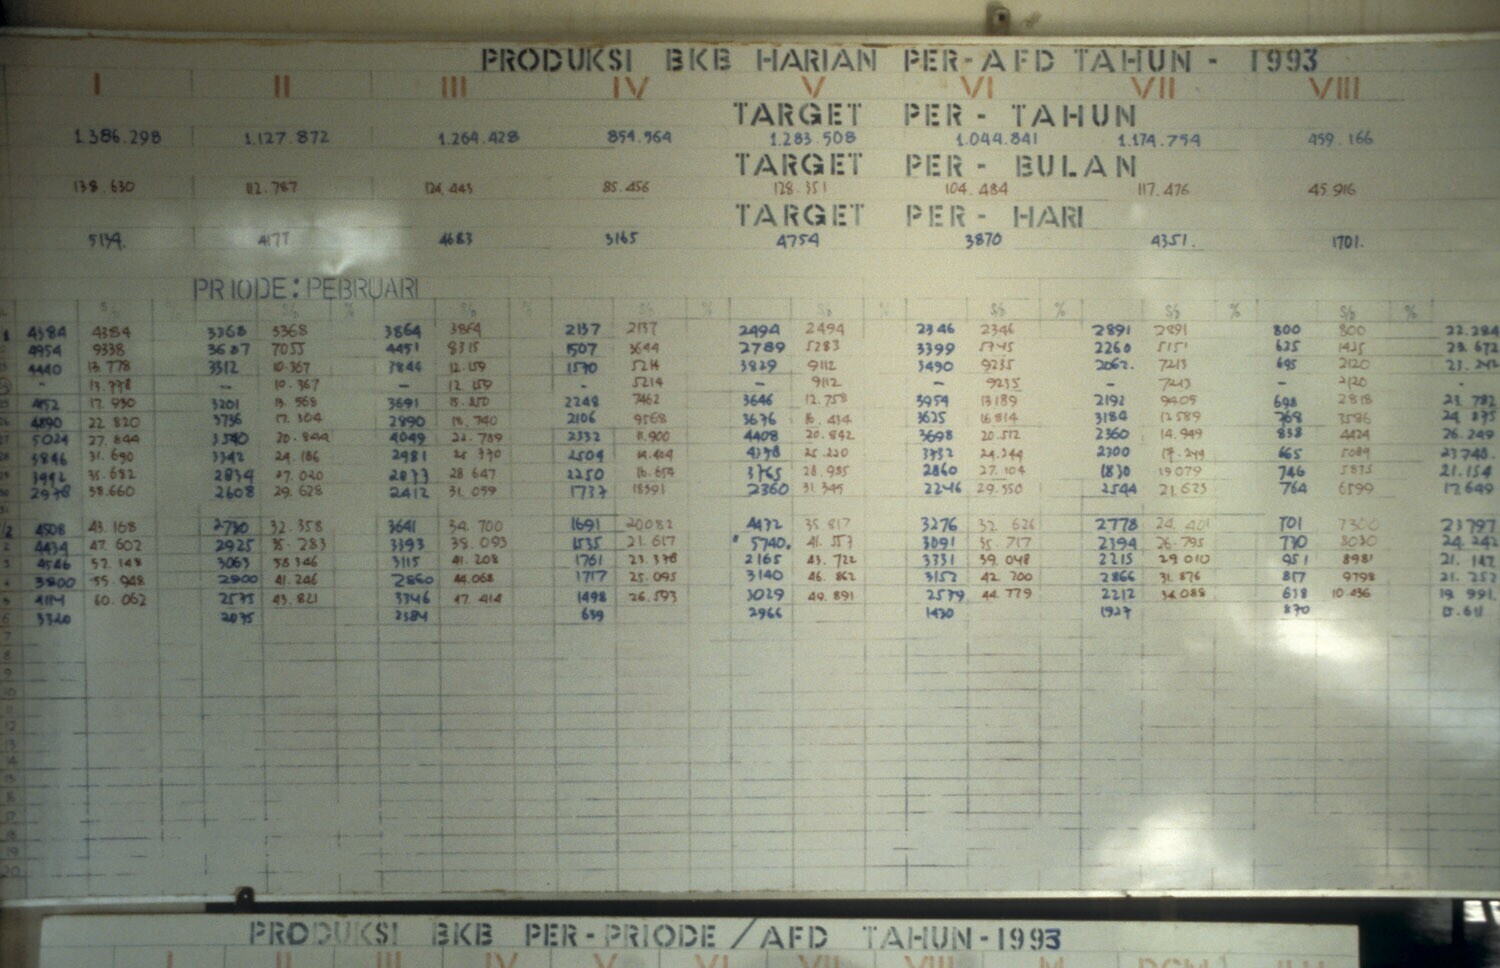 PRODUKSI BKB HARIAN PER-AFD TAHUN - 1993
I II III IV V VI VII VIII
TARGET PER - TAHUN
1.386.298 1.127.872 1.264.428 854.564 1.283.508 1.044.841 1.174.754 459.166
TARGET PER - BULAN
138.630 112.787 124.443 85.456 128.351 104.484 117.476 45.916
TARGET PER - HARI
5134. 4177 4683 3165 4754 3870 4351. 1701.
PRIODE: PEBRUARI
S/D % S/D % S/D % S/D % S/D % S/D % S/D % S/D %
4384 4384 3368 3368 3864 3864 2137 2137 2494 2494 2346 2346 2891 2891 800 800 22.284
4954 9338 3687 7055 4451 8315 1507 3644 2789 5283 3399 5745 2260 5151 625 1425 23.672
4440 13.778 3312 10.367 3844 12.159 1570 5214 3829 9112 3490 9235 2062. 7213 695 2120 23.242
- 13.778 - 10.367 - 12.159 - 5214 - 9112 - 9235 - 7213 - 2120 -
4152 17.930 3201 13.568 3691 15.850 2248 7462 3646 12.758 3954 13189 2192 9405 698 2818 23.782
4890 22.820 3736 17.304 2890 18.740 2106 9568 3676 16.434 3625 16814 3184 12589 768 3586 24.875
5024 27.844 3540 20.844 4049 22.789 2332 11.900 4408 20.842 3698 20.512 2360 14.949 838 4424 26.249
3846 31.690 3342 24.186 2981 2504 2300 665 5089 23740.
3992 35.682 2834 27.020 2877 28.647 2250 3765 28.985 2860 27.104 1830 19079 746 5835 21.154
2978 38.660 2608 29.628 2412 31.059 1737 18391 2360 31.345 2246 29.350 2544 21.623 764 6599 17649
4508 43.168 2730 32.358 3641 34.700 1691 20082 4472 35.817 3276 32.626 2778 24.401 701 7300 23797
4434 47.602 2925 35.283 3393 38.093 1535 21.617 5740. 41.557 3091 35.717 2394 26.795 730 8030 24.242
4546 52.148 3063 38.346 3115 41.208 1761 23.378 2165 43.722 3331 39.048 2215 29.010 951 8981 21.147
3800 55.948 2900 41.246 2860 44.068 1717 25.095 3140 46.862 3152 42.200 2866 31.876 817 9798 21.252
4114 60.062 2575 43.821 3346 47.414 1498 26.593 3029 49.891 2579 44.779 2212 34.088 638 10.436 19.991.
3320 2075 2384 639 2966 1430 1927 870 15.611
7
8
9
10
11
12
13
14
15
16
17
18
19
20
PRODUKSI BKB PER-PRIODE/AFD TAHUN-1993
I II III IV V VI VII VIII